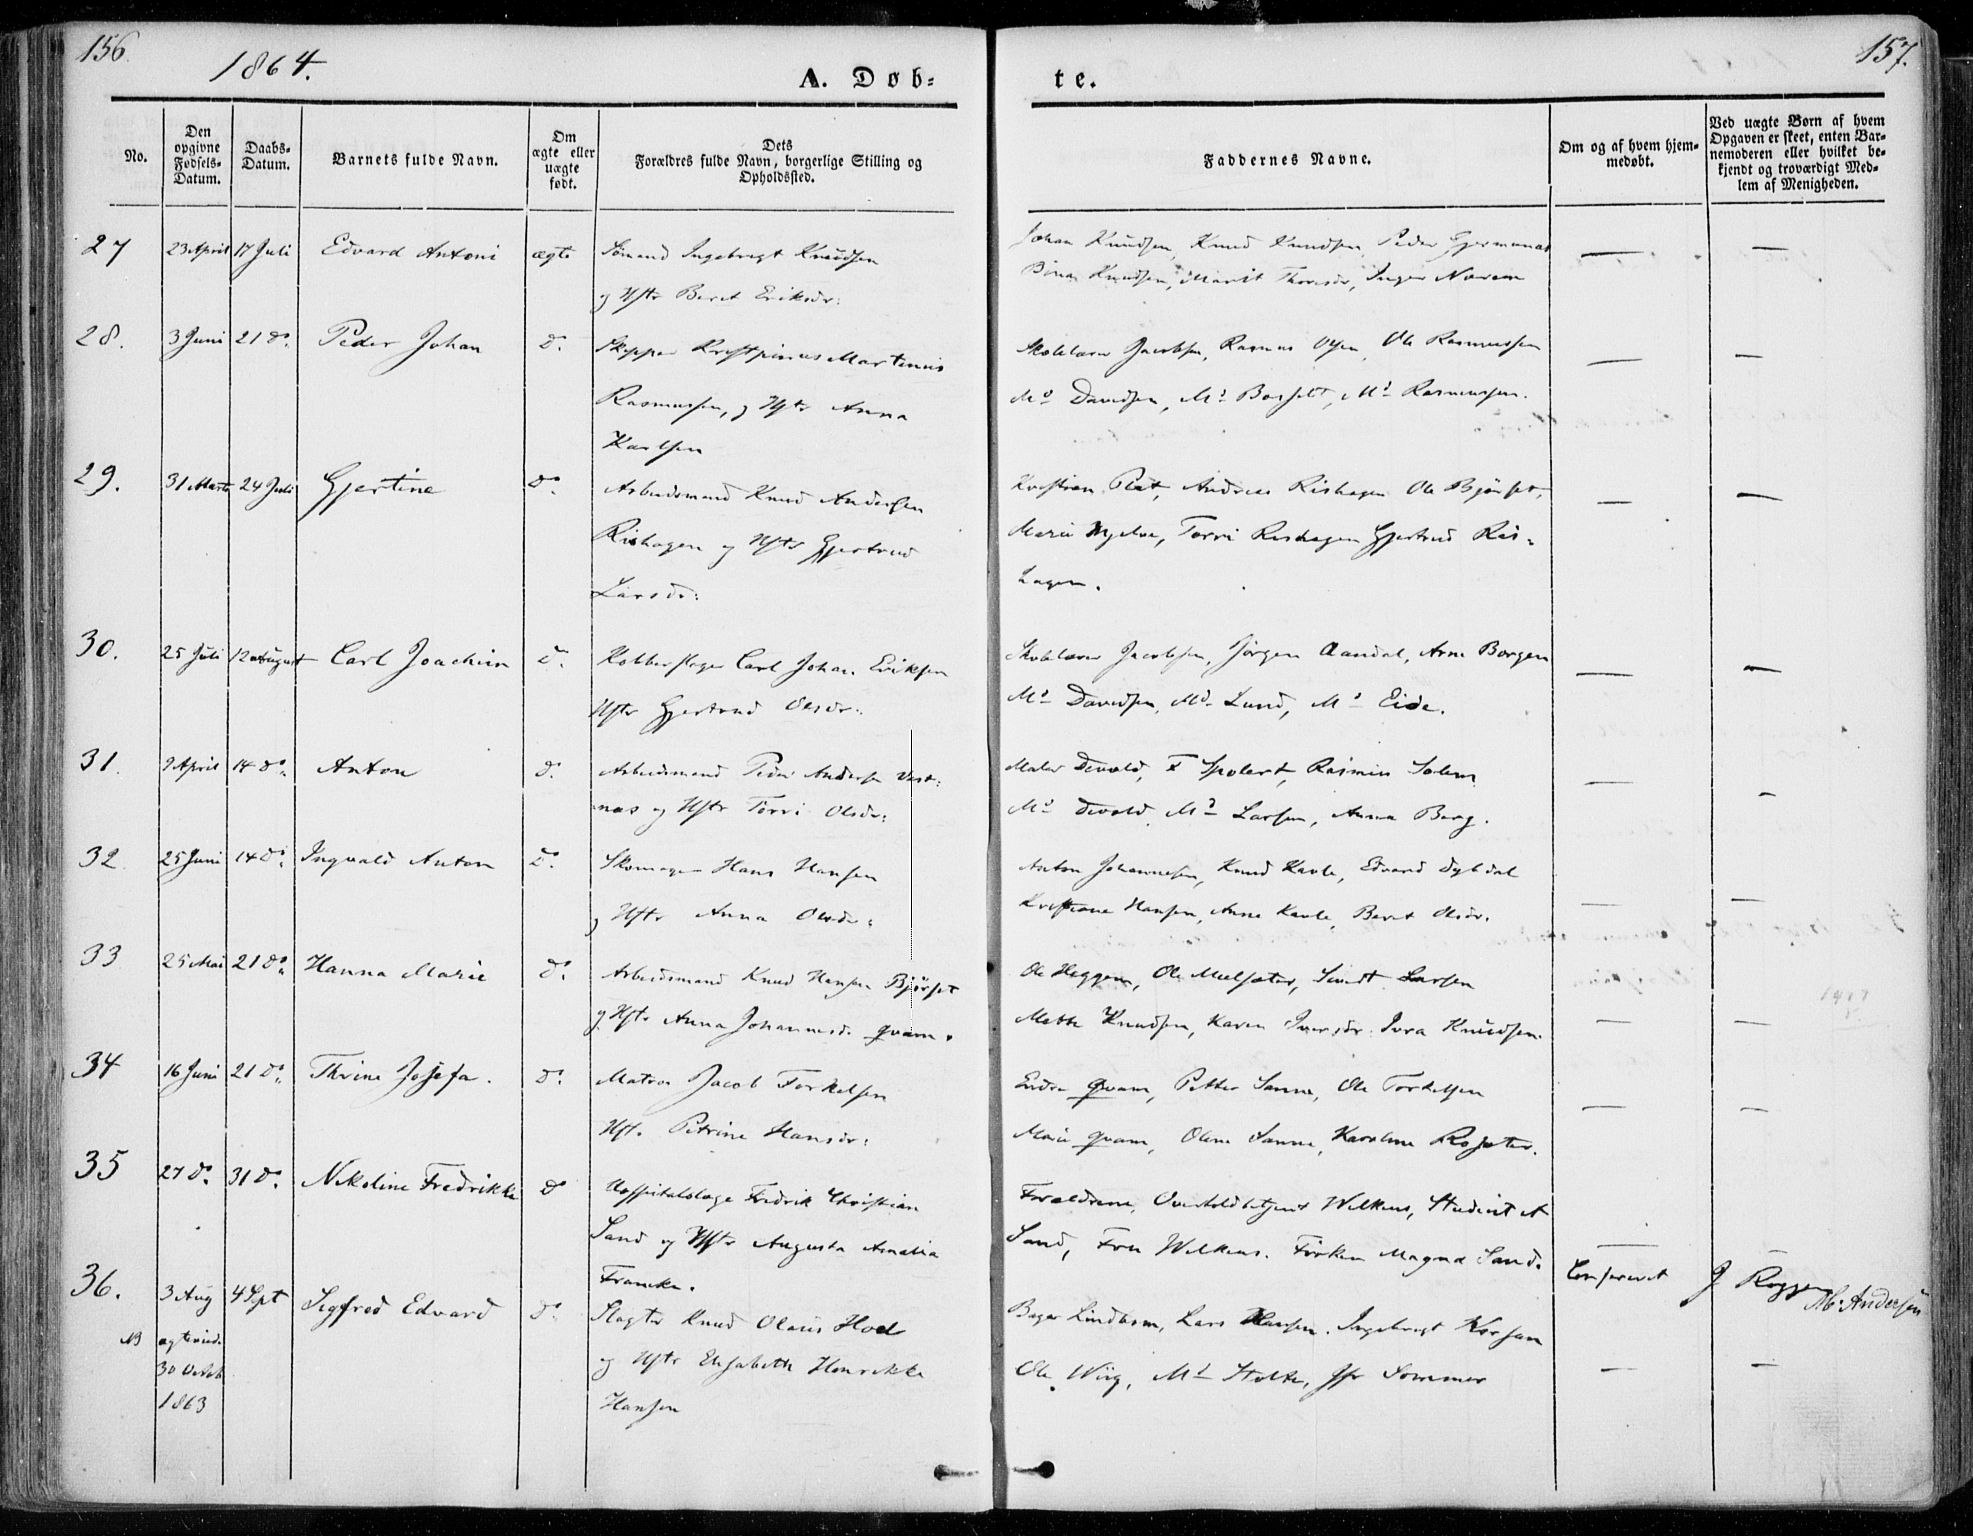 156.
1864.
A. Døb=
te.
157.
No.
Den opgivne Fødsels-Datum.
Daabs-Datum.
Barnets fulde Navn.
Om ægte eller uægte født.
Dets Forældres fulde Navn, borgerlige Stilling og Opholdssted.
Faddernes Navne.
Om og af hvem hjem-meddøbt.
Ved uægte Børn af hvem Opgaven er skeet, enten Bar-nemoderen eller hvilket be-kjendt og troværdigt Med-lem af Menigheden.
27 23 April 17 Juli Edvard Antoni ægte Sømand Ingebrigt Knudsen
og Hstr Beret Eriksdr:
Johan Knudsen, Knud Knudsen, Peder
Knudsen, Marit Thoresdr, Inger
28. 3 Juni 21 do. Peder Johan do. Skipper Krestpinus Martinus
Rasmussen, og Hstr Anna
Karlsen
Skolelærer Jacobsen, Rasmus Olsen, Ole Rasmussen
Md Davidsen, Md, Md Rasmussen.
29. 31 Marts 24 Juli Gjertine do. Arbeidsmand Knud Andersen
Rishagen og Hstr Gjertrud
Larsdr:
Kristian, Andreas Rishagen Ole Bjørset,
Marie, Torri Rishagen Gjertrud Ris-
hagen.
30. 25 Juli 12 August Carl Joachim do. Kobberslager Carl Johan Eriksen
Hstr Gjertrud Olsdr:
Skolelærer Jacobsen, Jørgen Aandal, Arne Borgen
Md Davidsen, Md Lund, Md Eide.
31. 9 April 14 do. Anton do. Arbeidsmand Peder Andersen Vest-
næs og Hstr Torri Olsdr:
Maler Devold, F, Rasmus Solem
Md Devold, Md Larsen, Anna Berg.
32. 25 Juni 14 do. Ingvald Anton do. Skomager Hans Hansen
og Hstr Anna Olsdr:
Anton Johannesen, Knud Kavle, Edvard Dybdal
Kristiane Hansen, Anne Kavle, Beret Olsdr.
33 25 Mai 21 do. Hanna Marie do. Arbeidsmand Knud Hansen Bjørset
og Hstr Anna Johannesdr. Qvam.
Ole Heggem, Ole Mælsæter, Larsen
Mette Knudsen, Karen Iversdr Ivra Knudsen.
34 16 Juni 21 do. Thrine Josefa. do. Matros Jacob Torkelsen
Hstr. Petrine Hansdr:
Endre Qvam, Petter Sanne, Ole Torkelsen
Marie Qvam, Oline Sanne, Karoline Rosæter.
35 27 do. 31 do. Nikoline Fredrikke do Hospitalslæge Fredrik Christian
Sand og Hstr Augusta Amalia
Francke.
Forældrene, Overtoldbetjent Wilkens, Student A
Sand, Fru Wilkens. Frøken Magna Sand.
Confereret J Roggen M. Andersen
36. 3 Aug 4 Sept Sigfred Edvard do. Slagter Knud Olaus Hoel
og Hstr Elisabeth Henrikke
Hansen
NB ægteviede
30 Octob
1863
Bager Lindbom, Lars Hansen, Ingebrigt
Ole Wiig, Md Holte, Jfr Sommer